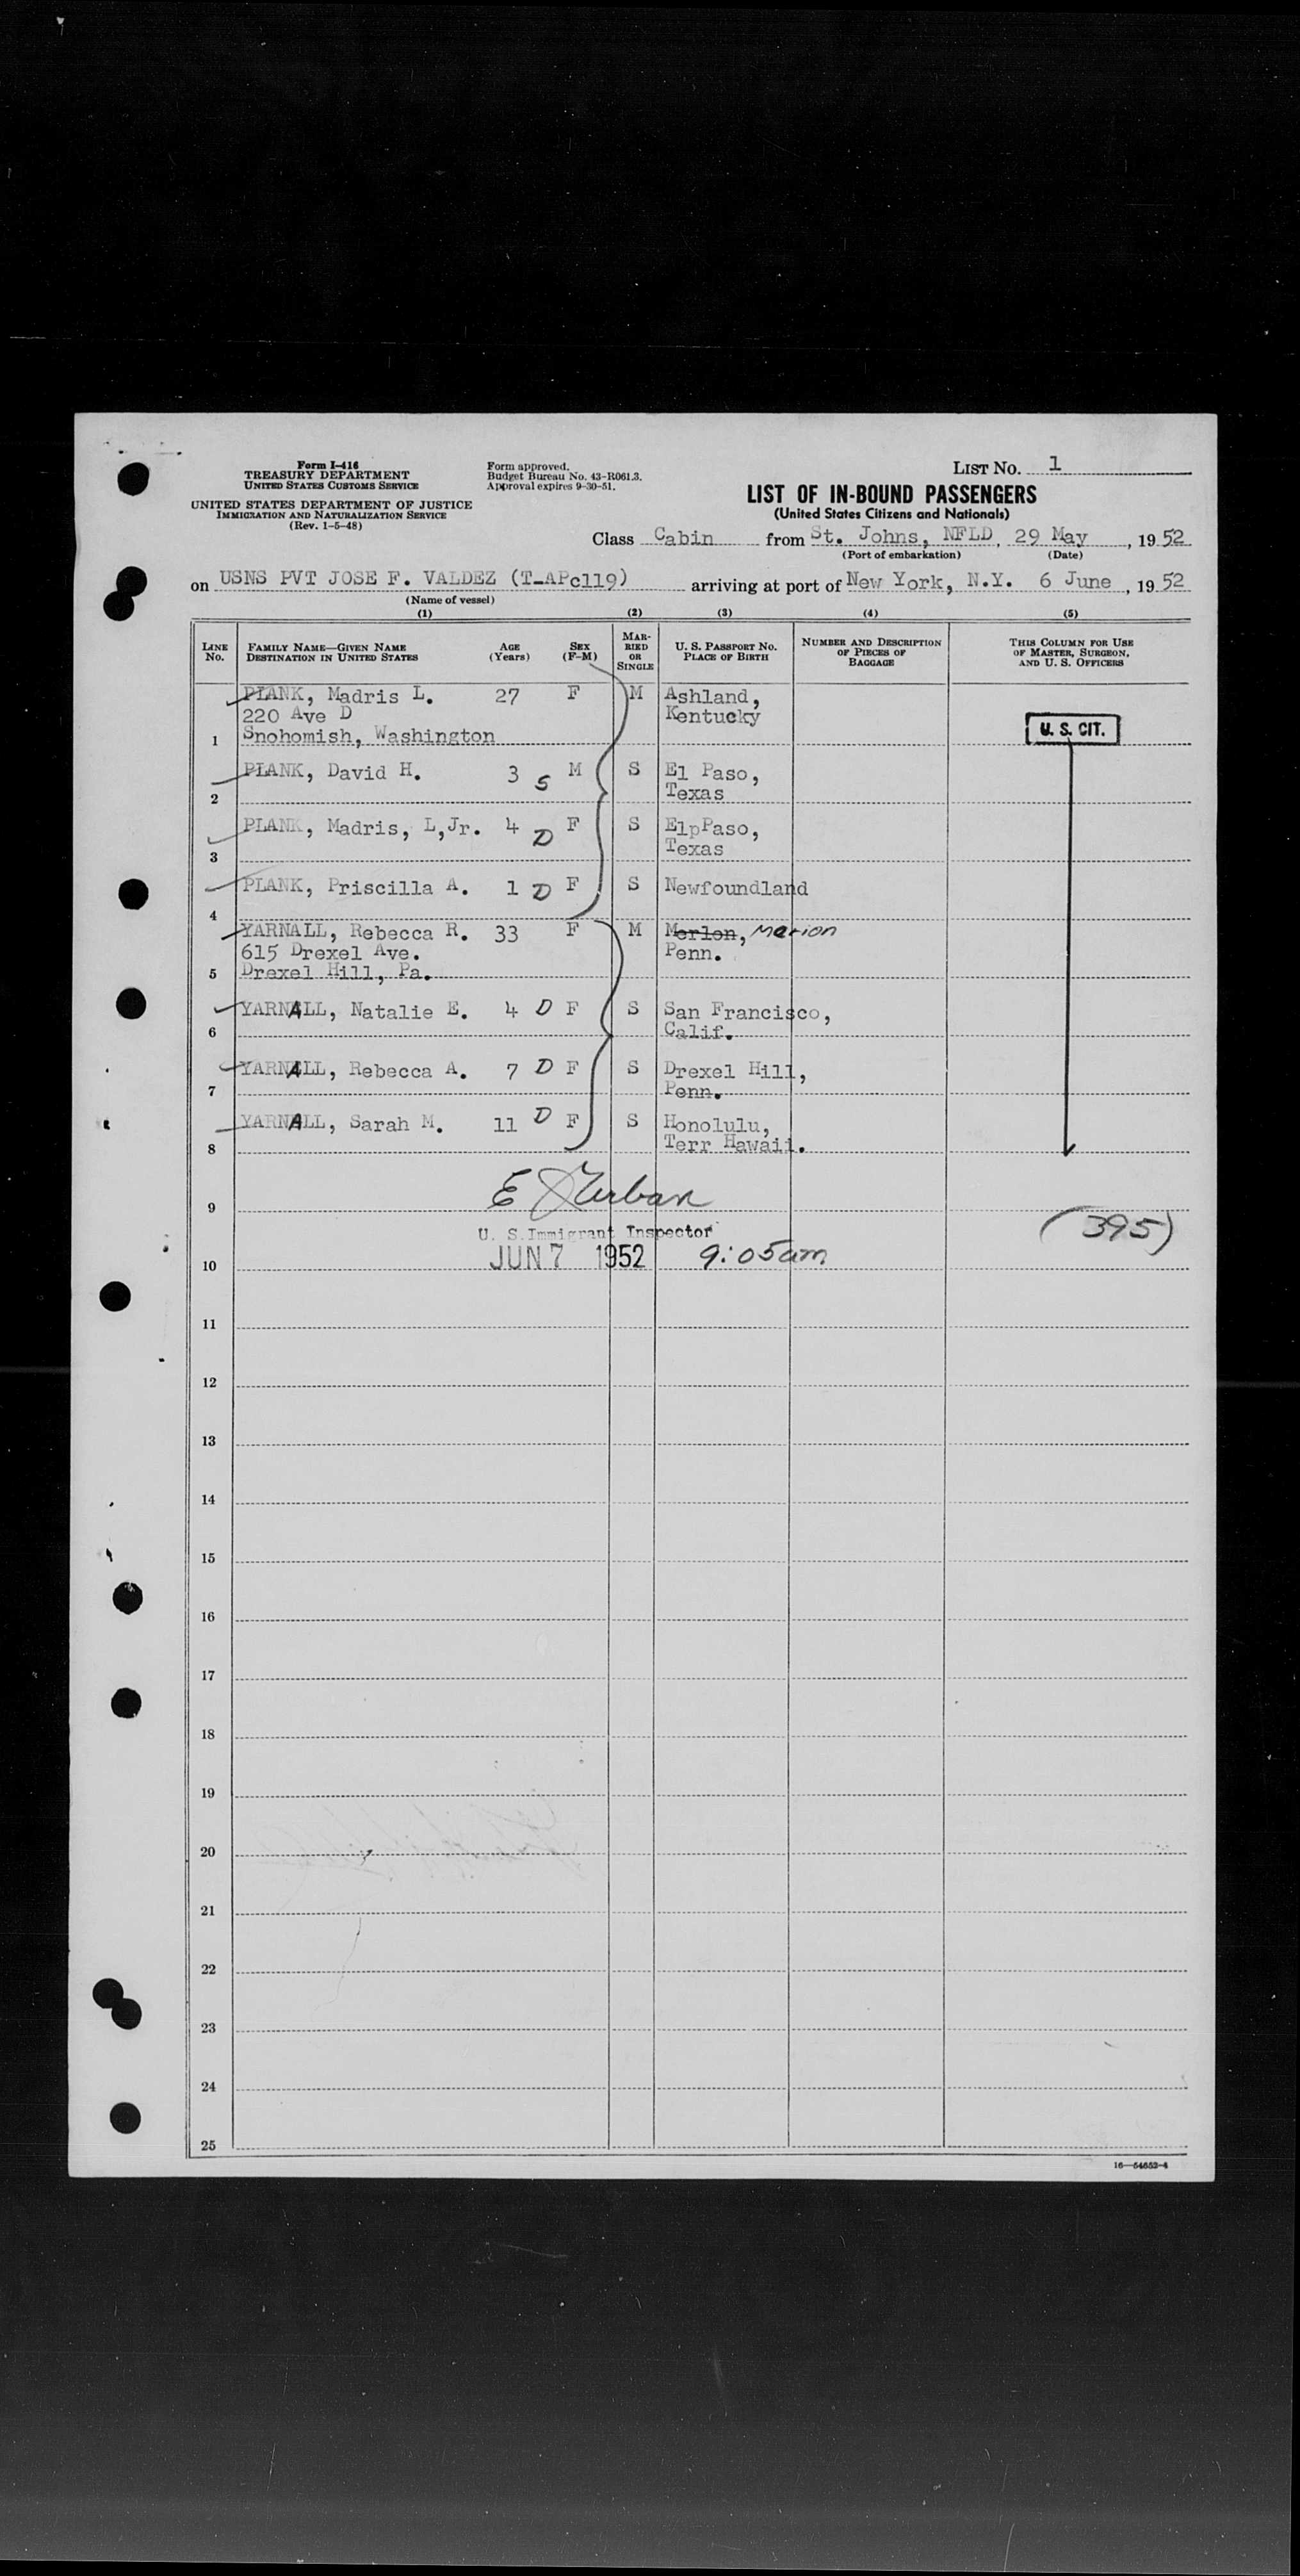 Form I-416
TREASURY DEPARTMENT
UNITED STATES CUSTOMS SERVICE
UNITED STATES DEPARTMENT OF JUSTICE
IMMIGRATION AND NATURALIZATION SERVICE
(Rev. 1-5-48)
Form approved.
Budget Bureau No. 43-R061.3.
Approval expires 9-30-51.
LIST NO. 1
LIST OF IN-BOUND PASSENGERS
(United States Citizens and Nationals)
Class Cabin from St. Johns, NFLD, 29 May, 1952
(Port of embarkation) (Date)
on USNS PVT JOSE F. VALDEZ (T-APc119) arriving at port of New York, N.Y. 6 June, 1952
(Name of vessel)
(1) (2) (3) (4) (5)
LINE NO. FAMILY NAME—GIVEN NAME DESTINATION IN UNITED STATES AGE (Years) SEX (F-M) MARRIED OR SINGLE U. S. PASSPORT NO. PLACE OF BIRTH NUMBER AND DESCRIPTION OF PIECES OF BAGGAGE THIS COLUMN FOR USE OF MASTER, SURGEON, AND U. S. OFFICERS
PLANK, Madris L. 27 F M Ashland,
220 Ave D Kentucky
1 Snohomish, Washington U. S. CIT.
PLANK, David H. 3 S M S El Paso,
2 Texas
PLANK, Madris, L,Jr. 4 D F S ElpPaso,
3 Texas
PLANK, Priscilla A. 1 D F S Newfoundland
4
YARNALL, Rebecca R. 33 F M Merlon, Merion
615 Drexel Ave. Penn.
5 Drexel Hill, Pa.
YARNALL, Natalie E. 4 D F S San Francisco,
6 Calif.
YARNALL, Rebecca A. 7 D F S Drexel Hill,
7 Penn.
YARNALL, Sarah M. 11 D F S Honolulu,
8 Terr Hawaii.
9
U. S. Immigrant Inspector (395)
10 JUN 7 1952 9:05am
11
12
13
14
15
16
17
18
19
20
21
22
23
24
25
16—54652-4